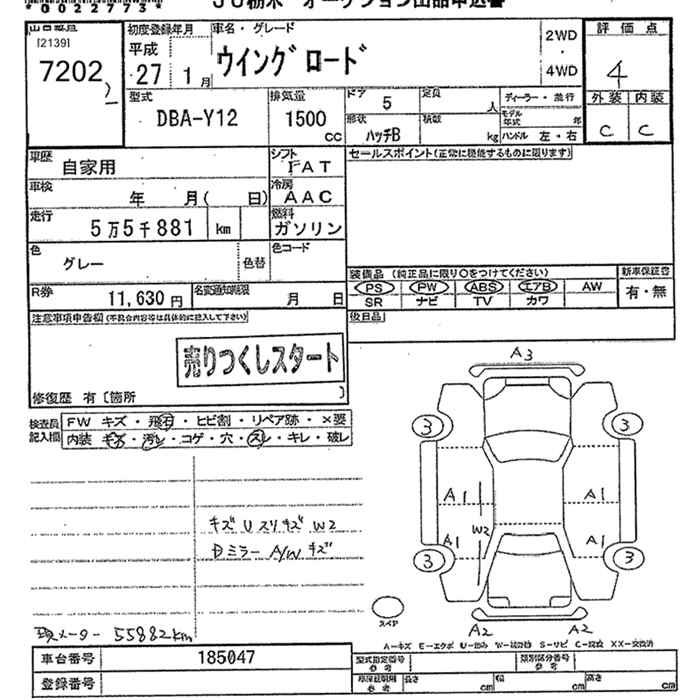 *0022773*
JU栃木 オークション出品申込書
[2139]
7202
初度登録年月
平成
27 1月
車名・グレード
ウイングロード
2WD
・
4WD
評価点
4
外装 内装
C C
型式
DBA-Y12
排気量
1500
cc
ドア 5
定員 人
形状
ハッチB
積数 kg
ディーラー・並行
モデル年式 年
ハンドル 左・右
車歴
自家用
シフト
FAT
セールスポイント(正常に機能するものに限ります)
車検
年 月( 日)
冷房
AAC
走行
5万5千881 km
燃料
ガソリン
色
グレー
色替
色コード
装備品 (純正品に限り○をつけてください)
PS PW ABS エアB AW
SR ナビ TV カワ
新車保証書
有・無
R券
11,630円
名変通知期限
月 日
後日品
注意事項申告欄(不具合内容等は具体的に記入して下さい)
売りつくしスタート
修復歴 有〔箇所 〕
検査員記入欄
FW キズ・飛石・ヒビ割・リペア跡・×要
内装 キズ・汚レ・コゲ・穴・スレ・キレ・破レ
A3
3 3
A1 A1
W2
A1 A1
3 3
A2 A2
キズ U スリキズ W2
Dミラー A/W キズ
スペア
現メーター 55882km
A-キズ E-エクボ U-凹み W-波打ち S-サビ C-腐食 XX-交換済
車台番号 185047
登録番号
型式指定番号
参考
類別区分番号
参考
車体証明用
参考
長さ cm
幅 cm
高さ cm